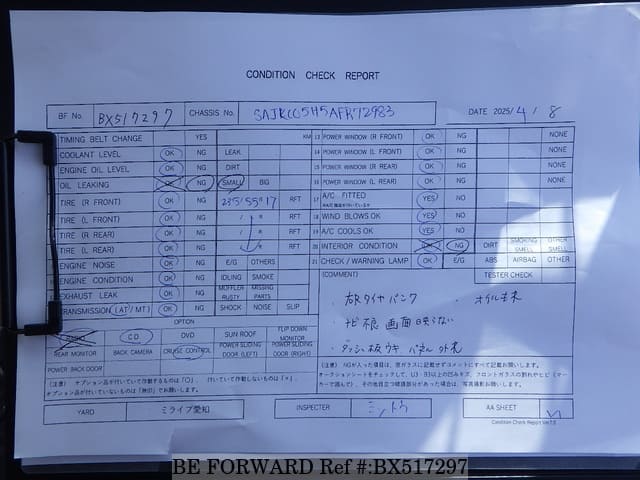 CONDITION CHECK REPORT
BF No. BX517297 CHASSIS No. DATE 2025/4/8
TIMING BELT CHANGE YES KM 13 POWER WINDOW (R FRONT) OK NG NONE
COOLANT LEVEL OK NG LEAK 14 POWER WINDOW (L FRONT) OK NG NONE
ENGINE OIL LEVEL OK NG DIRT 15 POWER WINDOW (R REAR) OK NG NONE
OIL LEAKING OK NG SMALL BIG 16 POWER WINDOW (L REAR) OK NG NONE
TIRE (R FRONT) OK NG 235/55R17 RFT 17 A/C FITTED YES NO
TIRE (L FRONT) OK NG R RFT 18 WIND BLOWS OK YES NO
TIRE (R REAR) OK NG R RFT 19 A/C COOLS OK YES NO
TIRE (L REAR) OK NG R RFT 20 INTERIOR CONDITION OK NG DIRT SMOKING SMELL OTHER SMELL
ENGINE NOISE OK NG E/G OTHERS 21 CHECK / WARNING LAMP OK E/G ABS AIRBAG OTHER
ENGINE CONDITION OK NG IDLING SMOKE (COMMENT) TESTER CHECK
EXHAUST LEAK OK NG MUFFLER RUSTY MISSING PARTS
TRANSMISSION (AT/MT) OK NG SHOCK NOISE SLIP
右Rタイヤパンク
オイル
OPTION
CD DVD SUN ROOF FLIP DOWN MONITOR
REAR MONITOR BACK CAMERA CRUISE CONTROL POWER SLIDING DOOR (LEFT) POWER SLIDING DOOR (RIGHT)
画面映らない
POWER BACK DOOR
(注意) オプション品が付いていて作動するものは「○」、付いていて作動しないものは「×」、
オプション品が付いていないものは「無印」でお願いします。
(注意) NGが入った項目は、
YARD ミライブ愛知 INSPECTER ミントウ AA SHEET
Condition Check Report Ver.7.0
BE FORWARD Ref #:BX517297